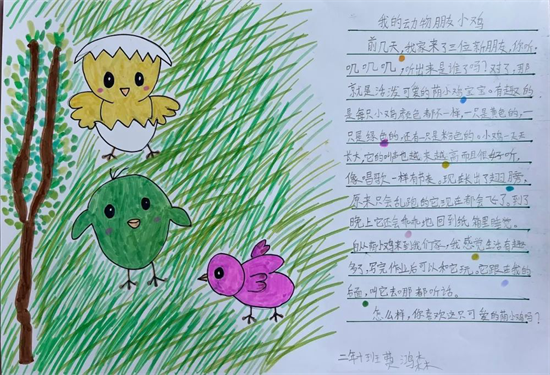 我的动物朋友小鸡
前几天,我家来了三位新朋友,你听,
叽叽叽,听出来是谁了吗?对了,那
就是活泼可爱的萌小鸡宝宝。有趣的
是每只小鸡颜色都不一样,一只是黄色的,一
只是绿色的,还有一只是粉色的。小鸡一天天
长大,它的叫声也越来越高而且很好听,
像唱歌一样有节奏。现在长出了翅膀,
原来只会乱跑的它现在都会飞了。到了
晚上它还会乖乖地回到纸箱里睡觉。
自从萌小鸡来到我们家,我感觉生活有趣
多了,写完作业后可以和它玩,它跟在我的
后面,叫它去哪都听话。
怎么样,你喜欢这只可爱的萌小鸡吗?
二年十班 鸿森